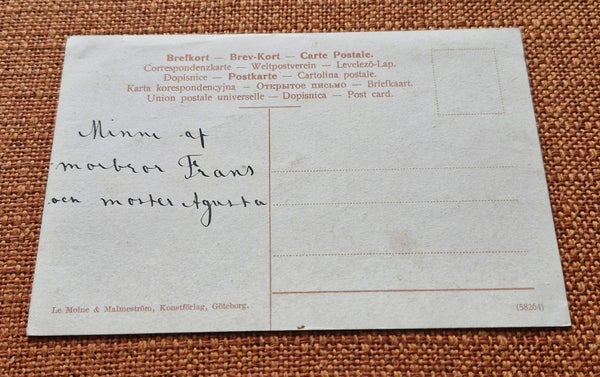 Brefkort — Brev-Kort — Carte Postale.
Correspondenzkarte — Weltpostverein — Levelező-Lap.
Dopisnice — Postkarte — Cartolina postale.
Karta korespondencyjna — Открытое письмо — Briefkaart.
Union postale universelle — Dopisnica — Post card.
Minne af
morbror Frans
och moster Agusta
Le Moine & Malmeström, Konstförlag, Göteborg.
(58264)